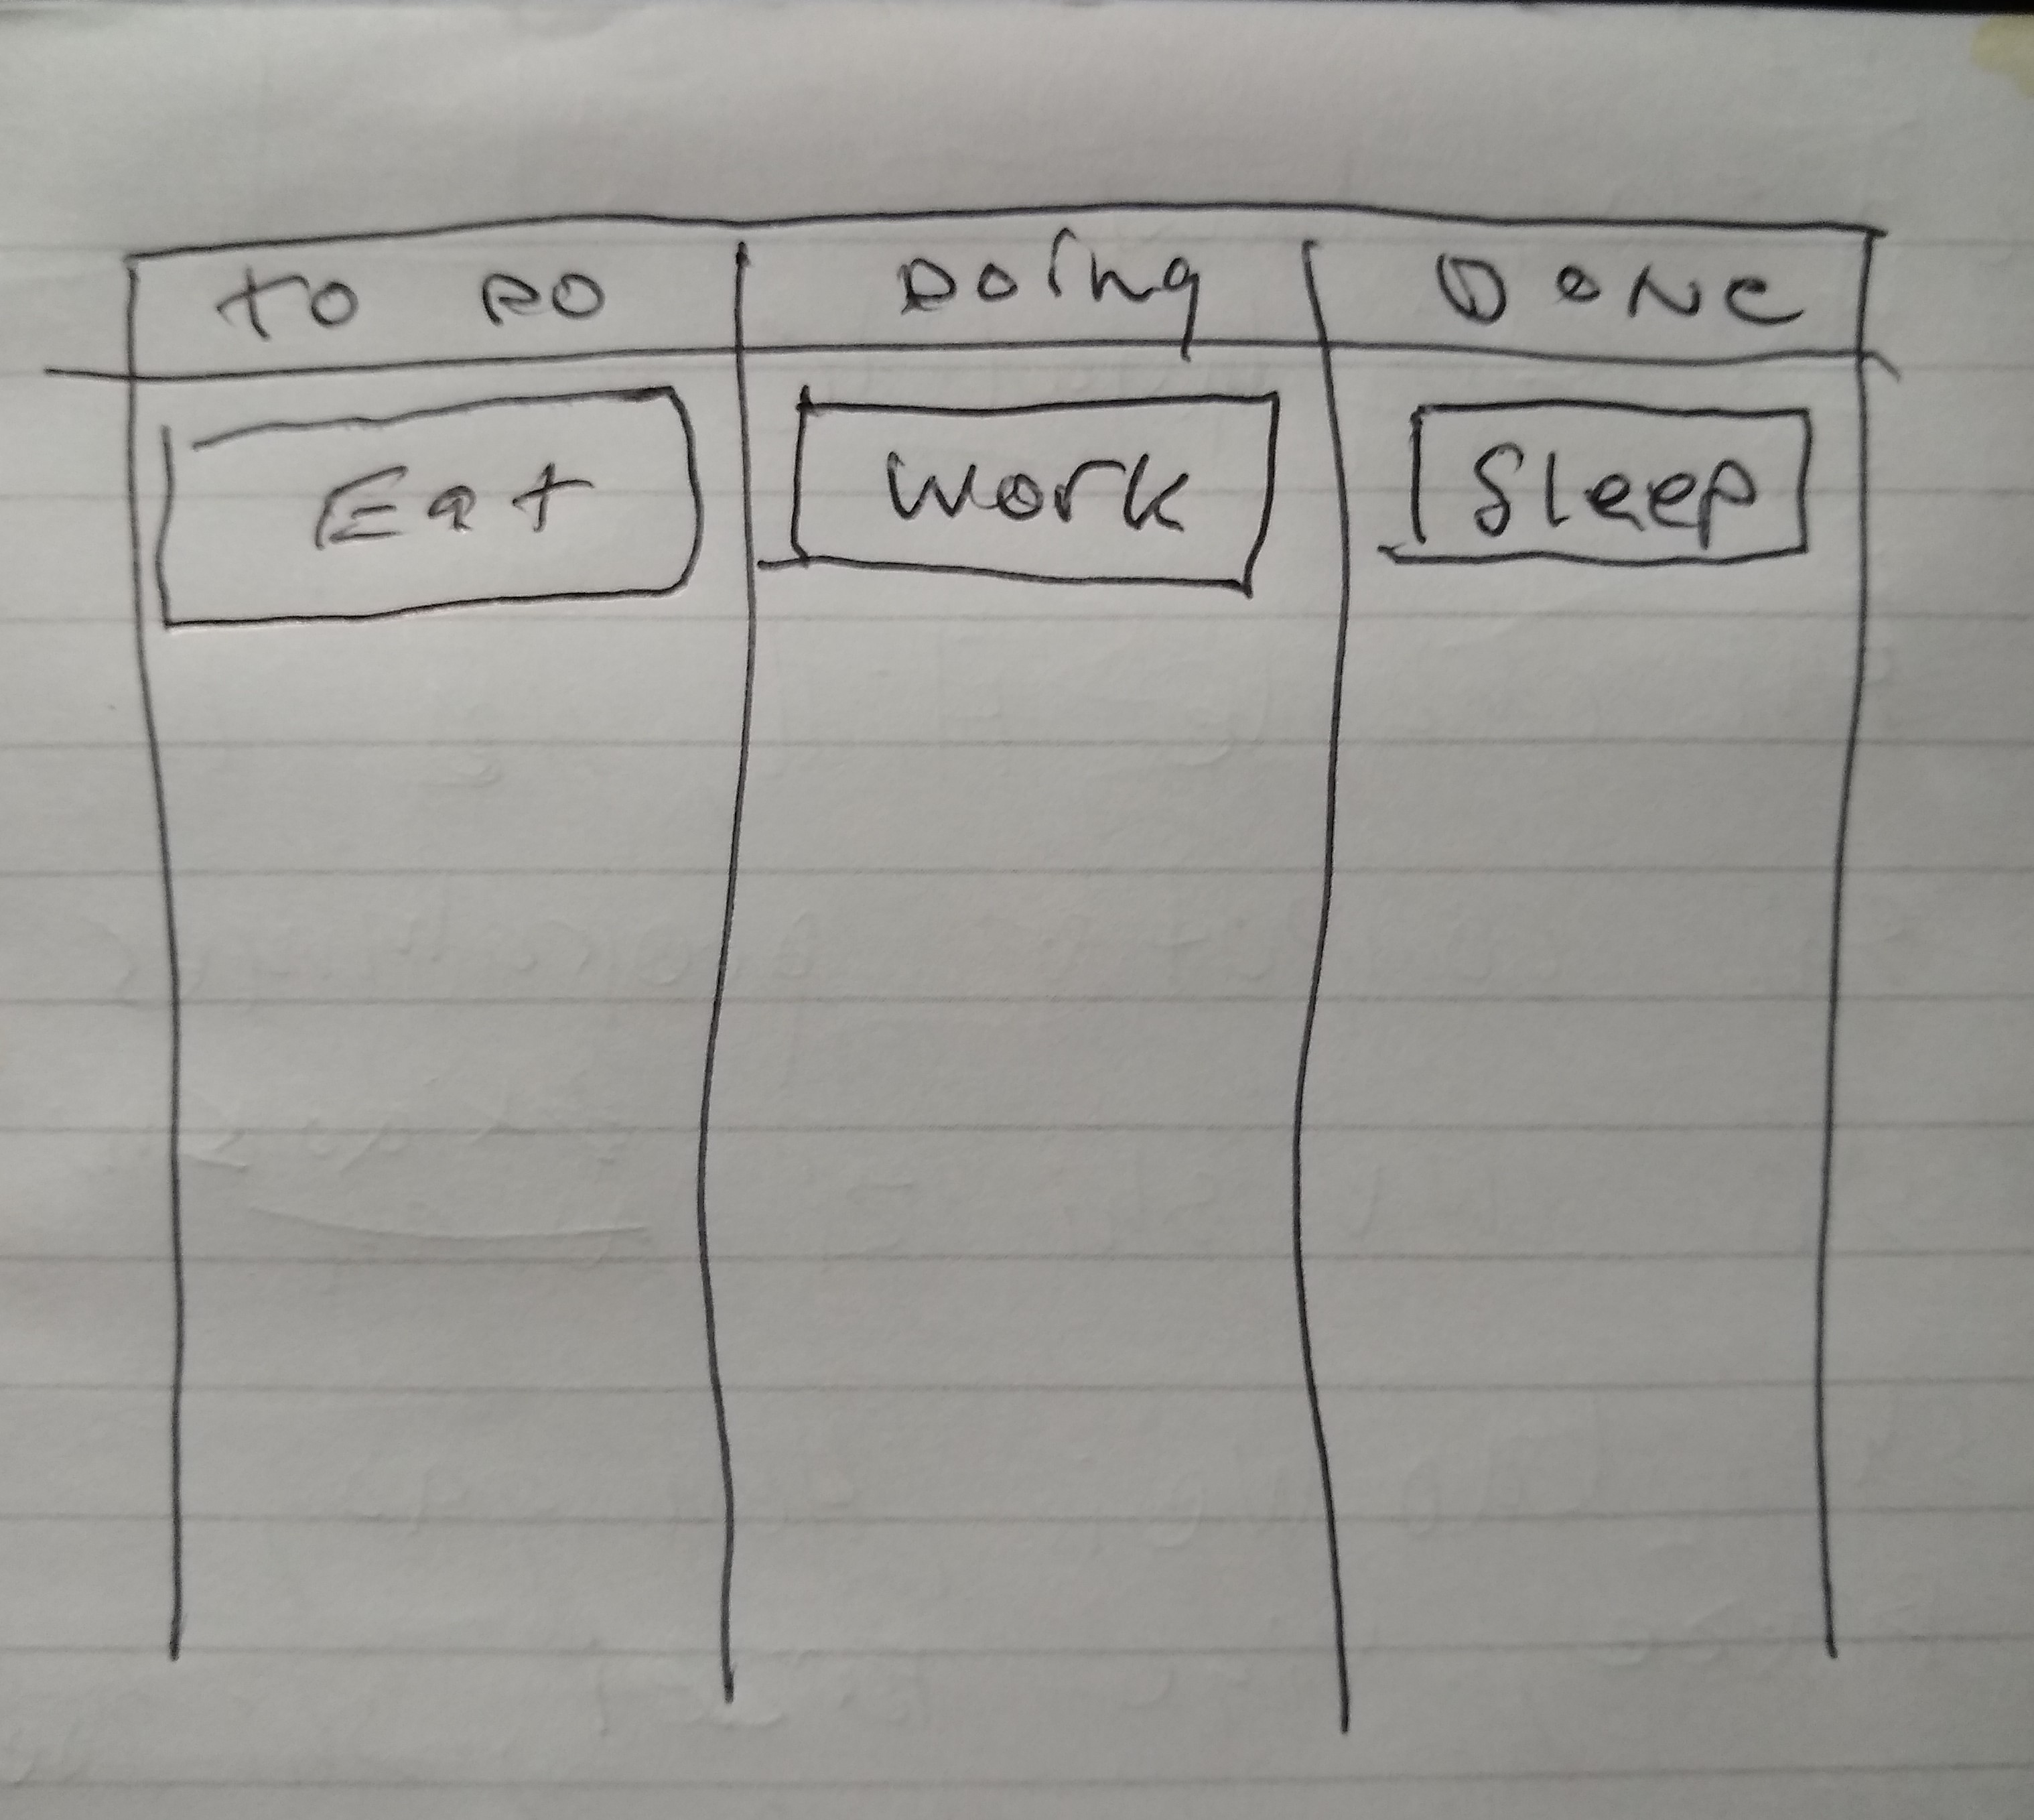 TO DO Doing DONe
Eat Work Sleep